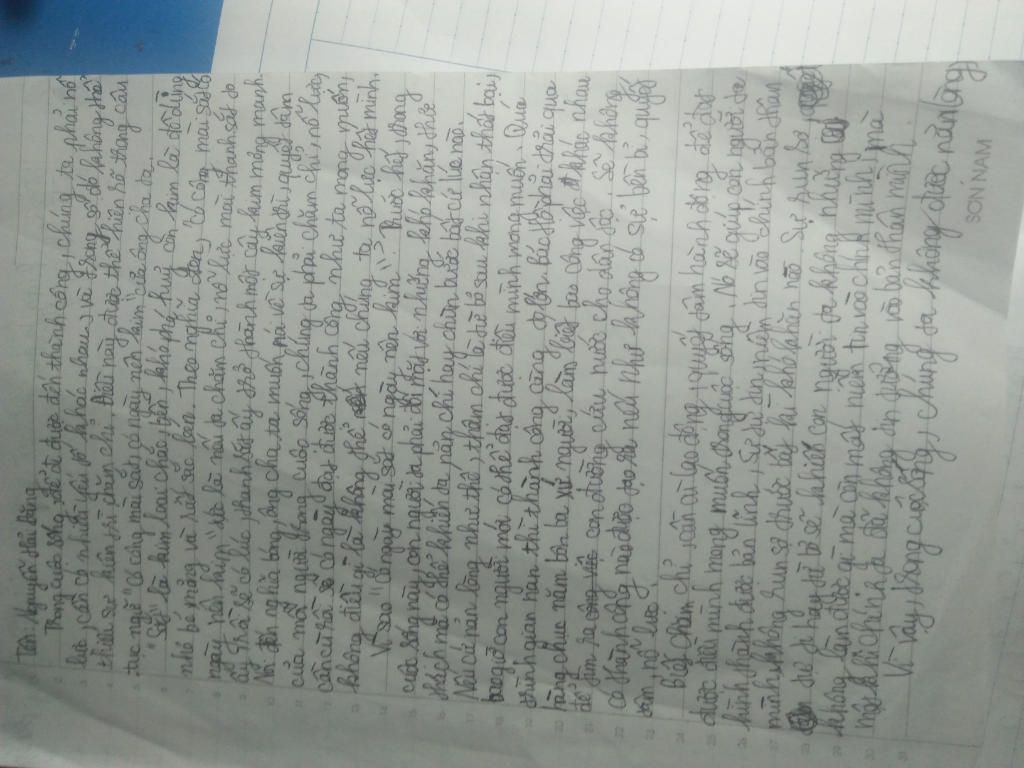 Tên: Nguyễn Hải Đăng
Trong cuộc sống, để đi được đến thành công, chúng ta phải nỗ
lực, cần có nhiều yếu tố khác nhau, và trong số đó không thể
thiếu sự kiên trì chăm chỉ. Điều này được thể hiện rõ trong câu
tục ngữ "Có công mài sắt có ngày nên kim" của ông cha ta.
"Sắt" là kim loại chắc bền, khó phá huỷ, còn kim là đồ dùng
nhỏ bé mỏng và rất sắc bén. Theo nghĩa đen, "Có công mài sắt có
ngày nên kim" tức là nếu ta chăm chỉ, nỗ lực mài thanh sắt to
ấy thì sẽ có lúc, thanh sắt ấy trở thành một cây kim mỏng manh.
Nói đến nghĩa bóng, ông cha ta muốn nói về sự kiên trì, quyết tâm
của mỗi người trong cuộc sống, chúng ta phải chăm chỉ, nỗ lực,
cần cù rồi sẽ có ngày đạt được thành công như ta mong muốn,
không điều gì là không thể nếu chúng ta nỗ lực hết mình.
Vì sao "Có ngày mài sắt có ngày nên kim"? Trước hết, trong
cuộc sống này, con người ta phải đối mặt với những khó khăn, thử
thách mà có thể khiến ta nản chí hay chần bước bất cứ lúc nào.
Nếu cứ nản lòng như thế, thậm chí là từ bỏ sau khi nhận thất bại,
con người mới có thể đạt được điều mình mong muốn. Quá
trình gian nan thì thành công càng Bác Hồ phải trải qua
hàng chục năm bôn ba xứ người, làm bao công việc khác nhau
để tìm ra con đường cứu nước cho dân tộc. Sẽ không
có thành công nào được tạo ra nếu như không có sự bền bỉ, quyết
tâm, nỗ lực.
Biết chăm chỉ, cần cù lao động, quyết tâm hành động để đạt
được điều mình mong muốn trong cuộc sống. Nó sẽ giúp con người ta
hình thành được bản lĩnh, sự tự tin, niềm tin vào chính bản thân
mình, không run sợ trước bất kì khó khăn nào. Sự run sợ,
do dự hay từ bỏ sẽ khiến con người ta không những
không làm được gì mà còn mất niềm tin vào chính mình, mà
một khi chính ta đã không tin tưởng vào bản thân mình
Vì vậy, trong cuộc sống, chúng ta không được nản lòng,
SƠN NAM